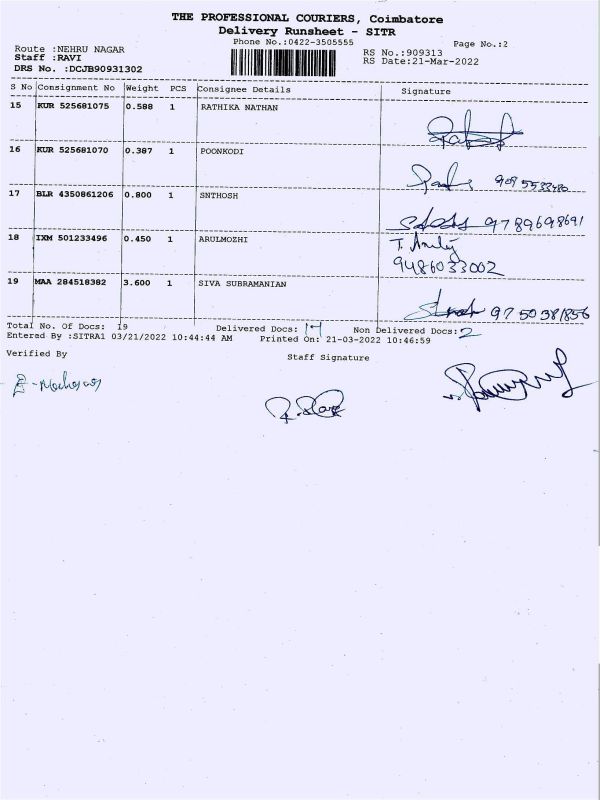 THE PROFESSIONAL COURIERS, Coimbatore
Delivery Runsheet - SITR
Phone No.:0422-3505555 Page No.:2
Route :NEHRU NAGAR RS No.:909313
Staff :RAVI RS Date:21-Mar-2022
DRS No. :DCJB90931302
S No Consignment No Weight PCS Consignee Details Signature
15 KUR 525681075 0.588 1 RATHIKA NATHAN
16 KUR 525681070 0.387 1 POONKODI
17 BLR 4350861206 0.800 1 SNTHOSH
9789698691
18 IXM 501233496 0.450 1 ARULMOZHI
9486033002
19 MAA 284518382 3.600 1 SIVA SUBRAMANIAN
9750381856
Total No. Of Docs: 19 Delivered Docs: 17 Non Delivered Docs: 2
Entered By :SITRA1 03/21/2022 10:44:44 AM Printed On: 21-03-2022 10:46:59
Verified By Staff Signature